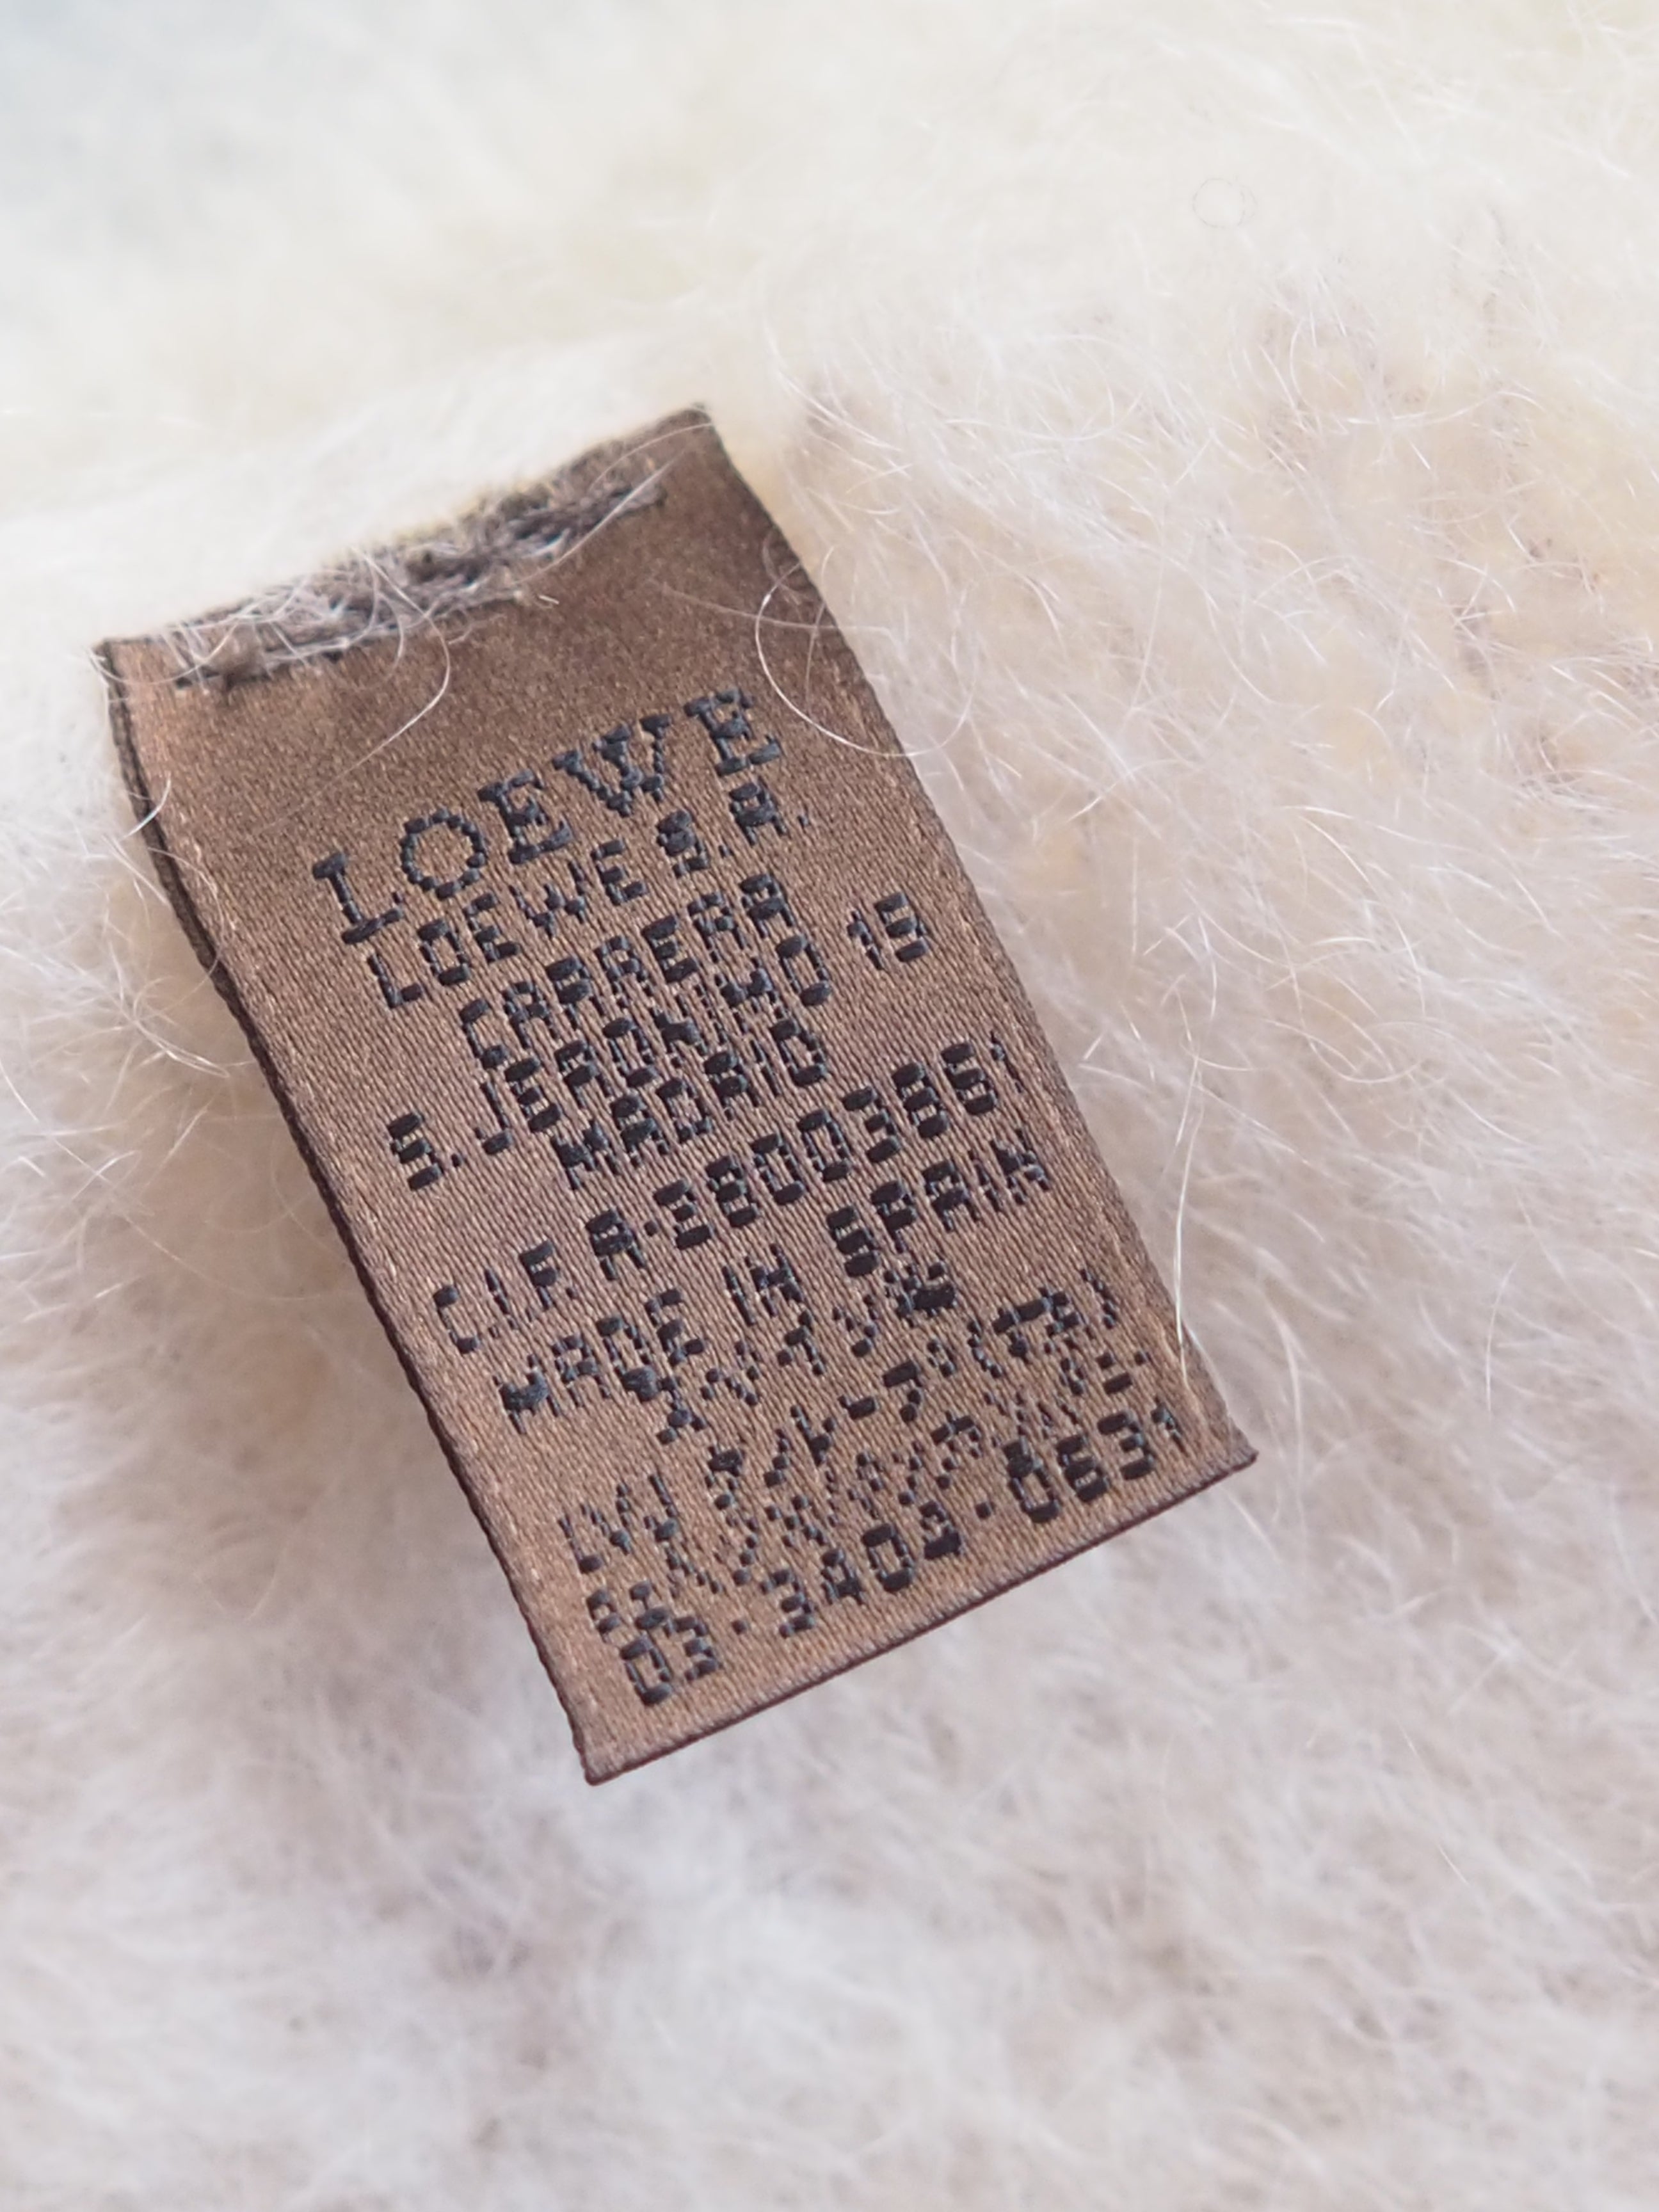 LOEWE
LOEWE S.A.
CARRERA
S. JERONIMO 15
MADRID
C.I.F. A·28003861
MADE IN SPAIN
スペイン製
LVJ グループ(株)
03·3404·0631